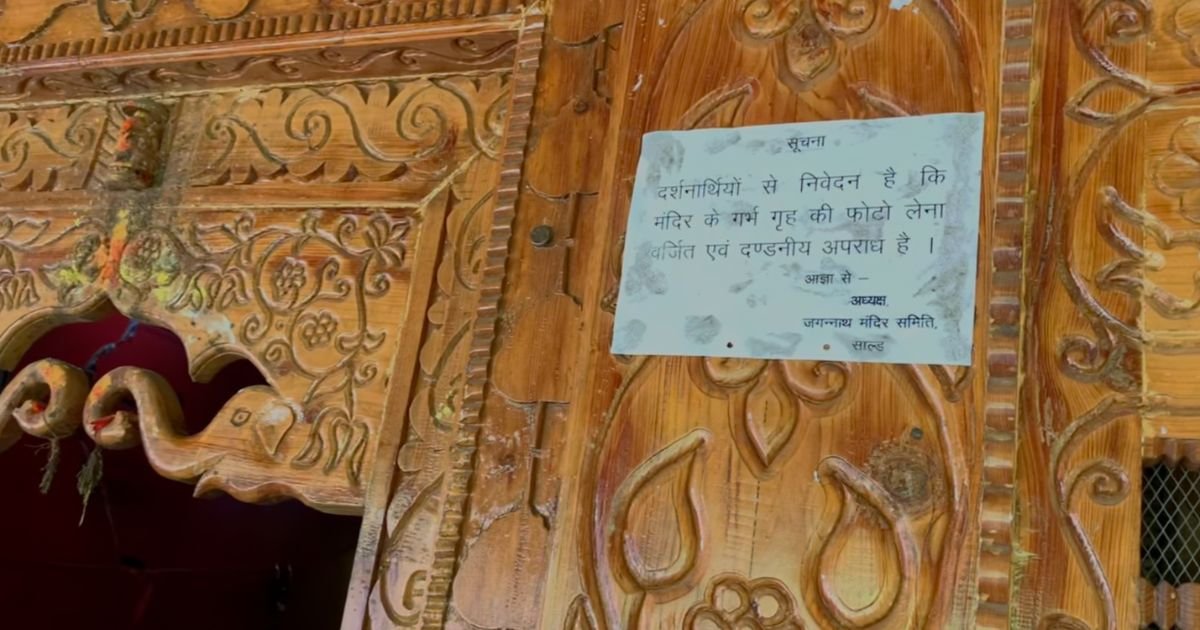 सूचना
दर्शनार्थियों से निवेदन है कि
मंदिर के गर्भ गृह की फोटो लेना
वर्जित एवं दण्डनीय अपराध है ।
आज्ञा से –
अध्यक्ष
जगन्नाथ मंदिर समिति,
साल्ड